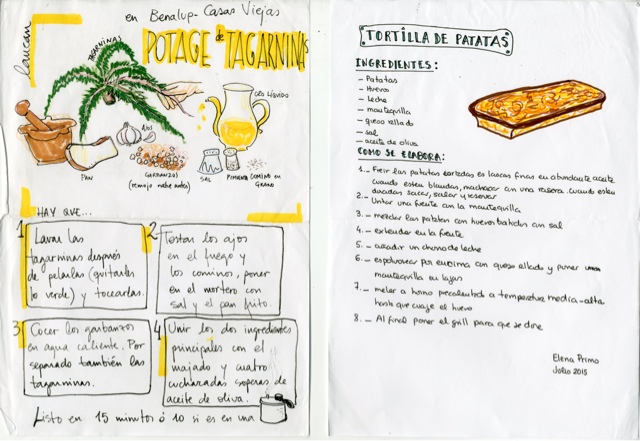 en Benalup-Casas Viejas
POTAGE de TAGARNINAS
TAGARNINAS
ORO LÍQUIDO
AJOS
PAN
GARBANZO
(remojo noche antes)
SAL
PIMIENTA
COMINO en GRANO
HAY QUE...
1 Lavar las
tagarninas después
de pelarlas (quitarles
lo verde) y trocearlas.
2 Tostar los ajos
en el fuego y
los cominos, poner
en el mortero con
sal y el pan frito.
3 Cocer los garbanzos
en agua caliente. Por
separado también las
tagarninas.
4 Unir los dos ingredientes
principales con el
majado y cuatro
cucharadas soperas de
aceite de oliva.
Listo en 15 minutos ó 10 si es en una
TORTILLA DE PATATAS
INGREDIENTES:
- Patatas
- Huevos
- Leche
- mantequilla
- queso rallado
- sal
- aceite de oliva
COMO SE ELABORA:
1._ Freir las patatas cortadas en lascas finas en abundante aceite
cuando esten blandas, machacar con una rasera. cuando esten
doradas sacar, salar y reservar
2._ Untar una fuente con la mantequilla
3._ mezclar las patatas con huevos batidos con sal
4._ extender en la fuente
5._ añadir un chorro de leche
6._ espolvorear por encima con queso rallado y poner
mantequilla en lajas
7._ meter a horno precalentado a temperatura media-alta
hasta que cuaje el huevo
8._ Al final poner el grill para que se dore
Elena Primo
Julio 2015